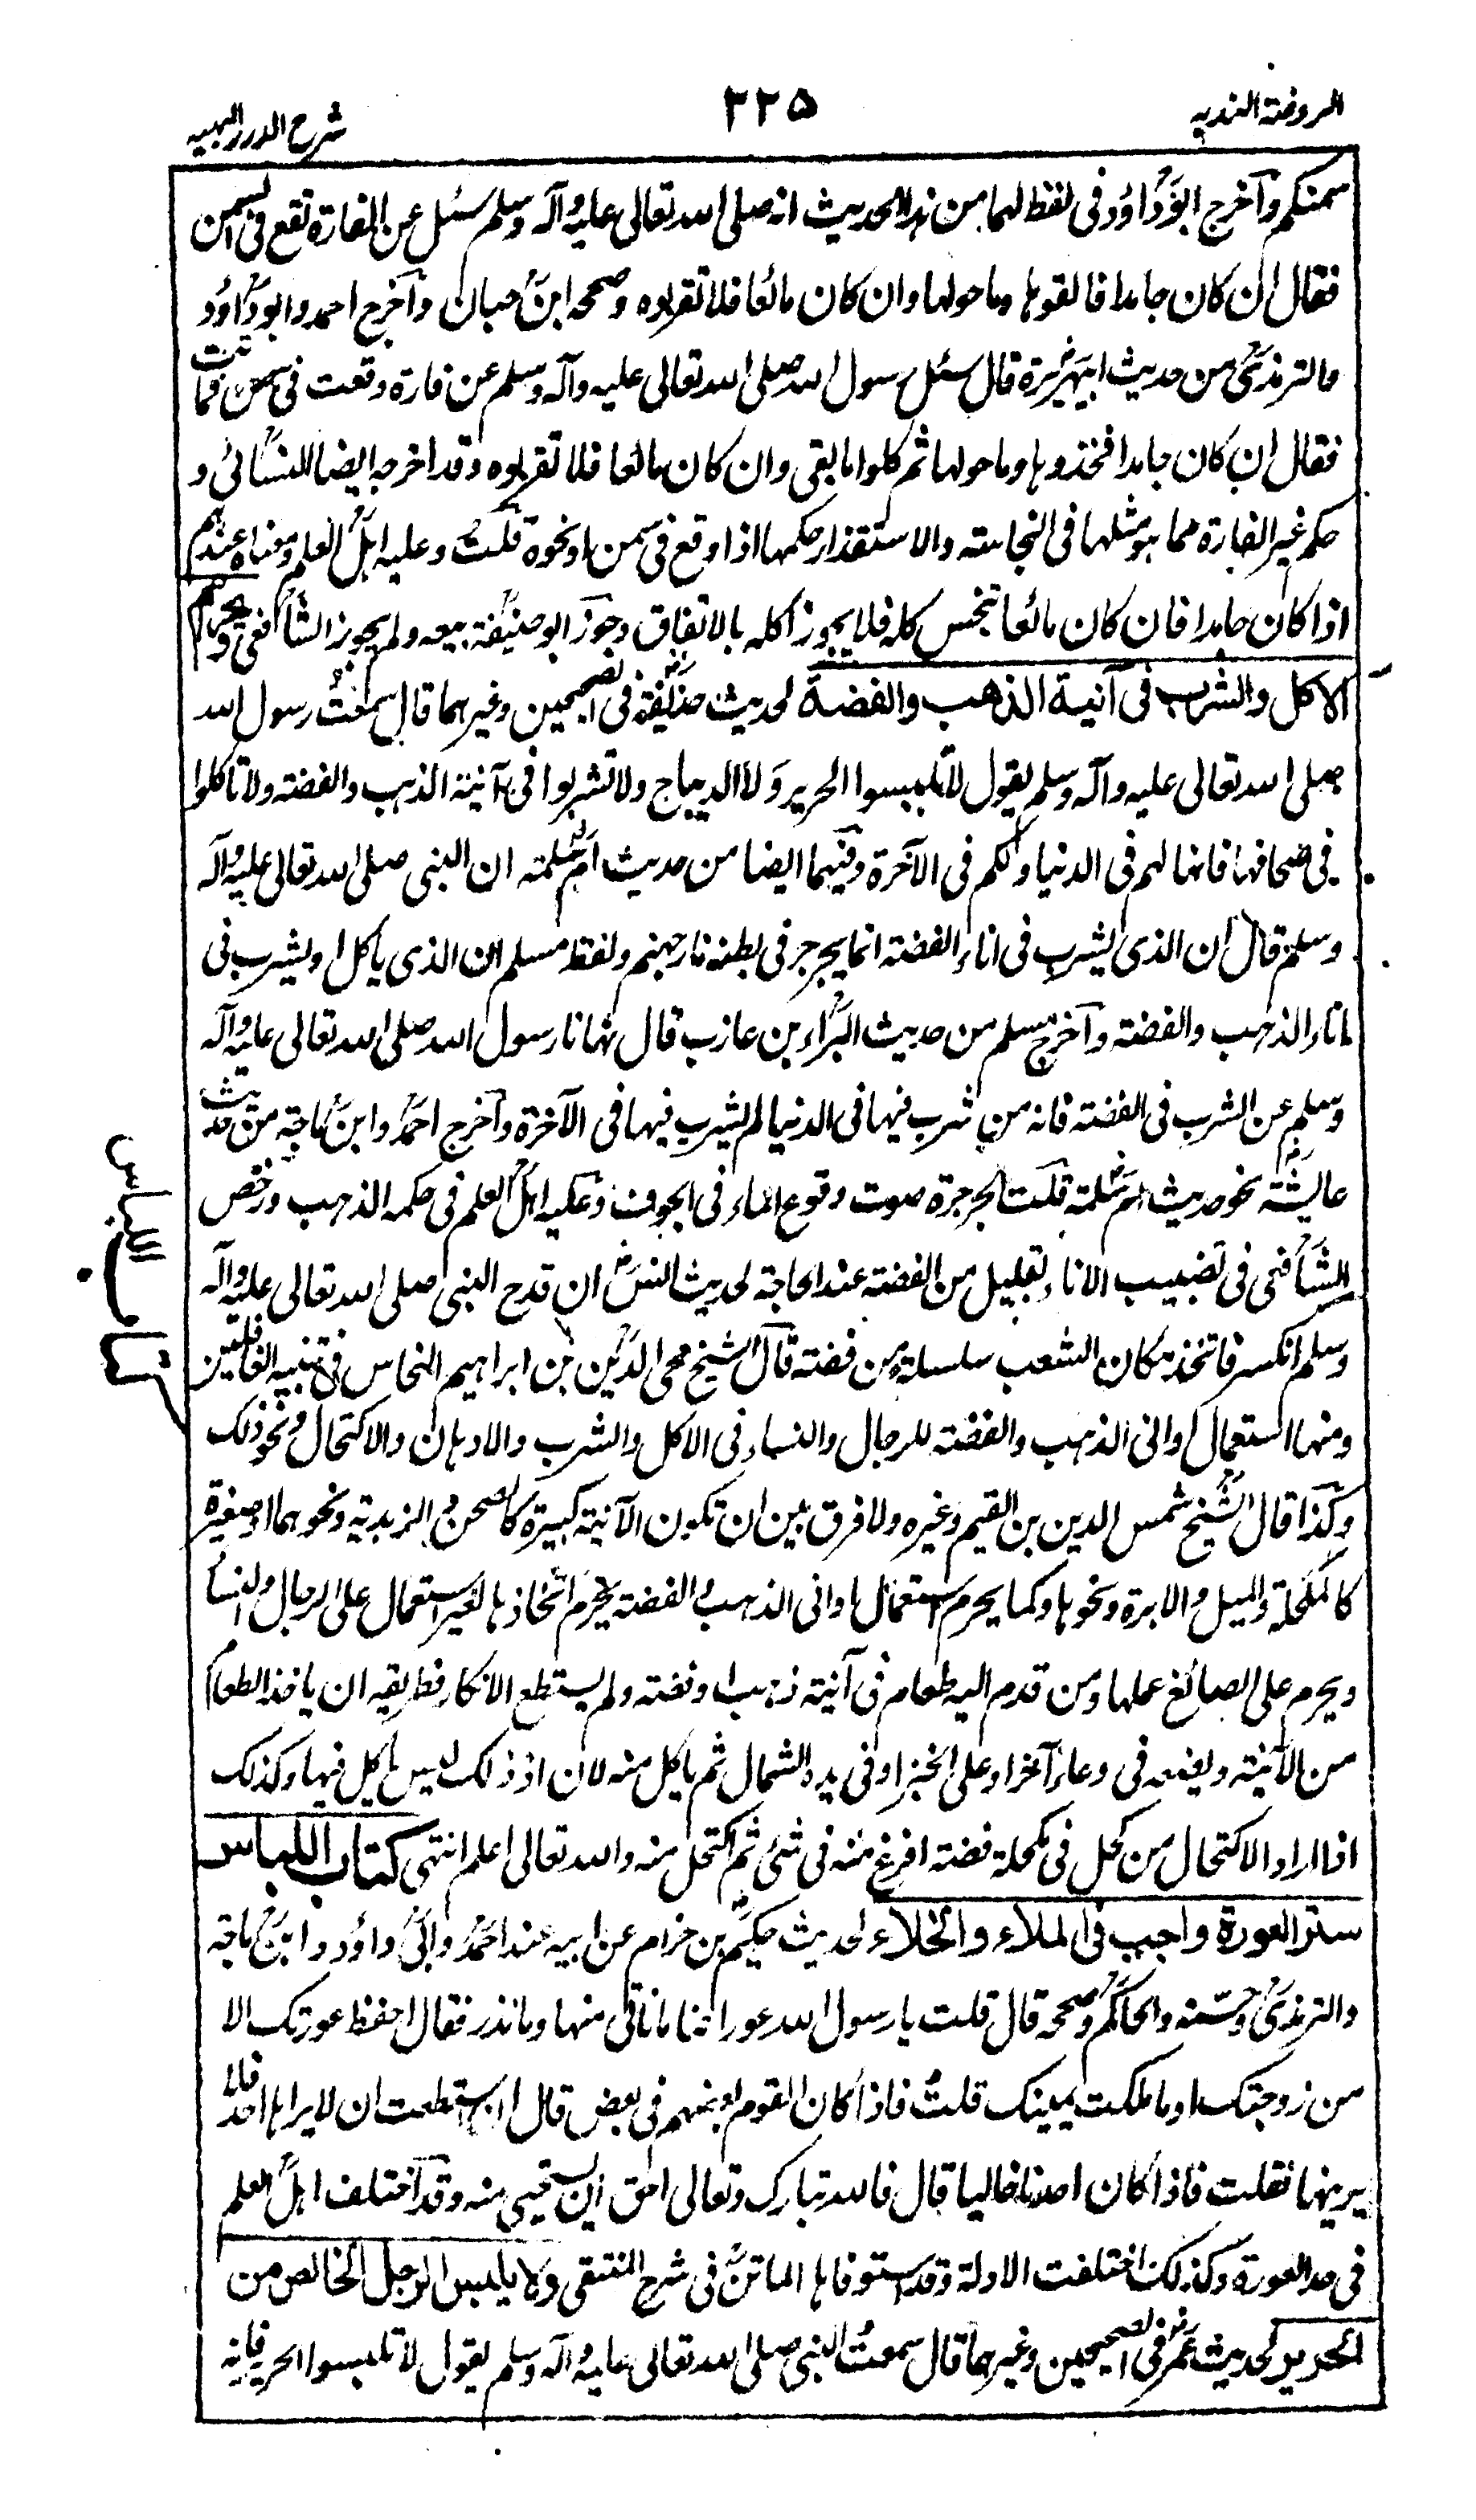 الروضة الندية
٢٢٥
شرح الدرر البهية
سمنكم وأخرج ابو داود فى لفظ لهما من هذا الحديث انه صلى الله تعالى عليه وآله وسلم سئل عن الفارة تقع فى السمن
فقال ان كان جامدا فالقوها وما حولها وان كان مائعا فلا تقربوه وصححه ابن حبان وأخرج احمد وابو داود
والترمذى من حديث ابى هريرة قال سئل رسول الله صلى الله تعالى عليه وآله وسلم عن فارة وقعت فى سمن فماتت
فقال ان كان جامدا فخذوها وما حولها ثم كلوا ما بقى وان كان مائعا فلا تقربوه وقد اخرجه ايضا النسائى و
حكم غير الفارة مما هو مثلها فى النجاسة والاستقذار حكمها اذا وقع فى سمن او نحوه قلت وعليه اهل العلم ومعناه عندهم
اذا كان جامدا فان كان مائعا تنجس كله فلا يجوز اكله بالاتفاق وجوز ابو حنيفة بيعه ولم يجوز الشافعى ويحرم
الاكل والشرب فى آنية الذهب والفضة لحديث حذيفة فى الصحيحين وغيرهما قال سمعت رسول الله
صلى الله تعالى عليه وآله وسلم يقول لا تلبسوا الحرير ولا الديباج ولا تشربوا فى آنية الذهب والفضة ولا تاكلوا
فى صحافها فانها لهم فى الدنيا ولكم فى الآخرة وفيهما ايضا من حديث ام سلمة ان النبى صلى الله تعالى عليه وآله
وسلم قال ان الذى يشرب فى اناء الفضة انما يجرجر فى بطنه نار جهنم ولفظ مسلم ان الذى ياكل او يشرب فى
اناء الذهب والفضة وأخرج مسلم من حديث البراء بن عازب قال نهانا رسول الله صلى الله تعالى عليه وآله
وسلم عن الشرب فى الفضة فانه من شرب فيها فى الدنيا لم يشرب فيها فى الآخرة وأخرج احمد وابن ماجة من حديث
عائشة نحو حديث ام سلمة قلت الجرجرة صوت وقوع الماء فى الجوف وعليه اهل العلم فى حكمه الذهب ورخص
الشافعى فى تضبيب الاناء بقليل من الفضة عند الحاجة لحديث انس ان قدح النبى صلى الله تعالى عليه وآله
وسلم انكسر فاتخذ مكان الشعب سلسلة من فضة قال الشيخ محى الدين بن ابراهيم النحاس فى تنبيه الغافلين
ومنها استعمال اوانى الذهب والفضة للرجال والنساء فى الاكل والشرب والادهان والاكتحال ونحو ذلك
وكذا قال الشيخ شمس الدين بن القيم وغيره ولا فرق بين ان تكون الآنية كبيرة كالصحن والزبدية ونحوهما او صغيرة
كالمكحلة والميل والابرة ونحوها وكما يحرم استعمال اوانى الذهب والفضة يحرم اتخاذها لغير استعمال على الرجال والنساء
ويحرم على الصائغ عملها ومن قدم اليه طعام فى آنية ذهب او فضة ولم يستطع الانكار فطريقه ان ياخذ الطعام
من الآنية ويضعه فى وعاء آخر او على الخبز او فى يده الشمال ثم ياكل منه لان اذ ذلك ليس باكل فيها وكذلك
اذا اراد الاكتحال من كحل فى مكحلة فضة افرغ منه فى شئ ثم اكتحل منه والله تعالى اعلم انتهى كتاب اللباس
ستر العورة واجب فى الملاء والخلاء لحديث حكيم بن حزام عن ابيه عند احمد وابى داود وابن ماجة
والترمذى وحسنه والحاكم وصححه قال قلت يا رسول الله عوراتنا ما ناتى منها وما نذر فقال احفظ عورتك الا
من زوجتك او ما ملكت يمينك قلت فاذا كان القوم بعضهم فى بعض قال ان استطعت ان لا يراها احد فلا
يرينها فقلت فاذا كان احدنا خاليا قال فالله تبارك وتعالى احق ان يستحيى منه وقد اختلف اهل العلم
فى حد العورة وكذلك اختلفت الادلة وقد استوفاها الماتن فى شرح المنتقى ولا يلبس الرجل الخالص من
الحرير لحديث عمر فى الصحيحين وغيرهما قال سمعت النبى صلى الله تعالى عليه وآله وسلم يقول لا تلبسوا الحرير فانه
كتاب اللباس